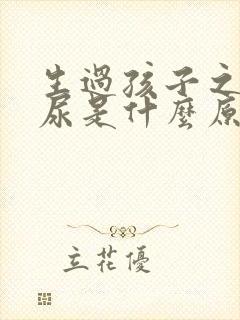 生過孩子之
尿是什麼原
立花優